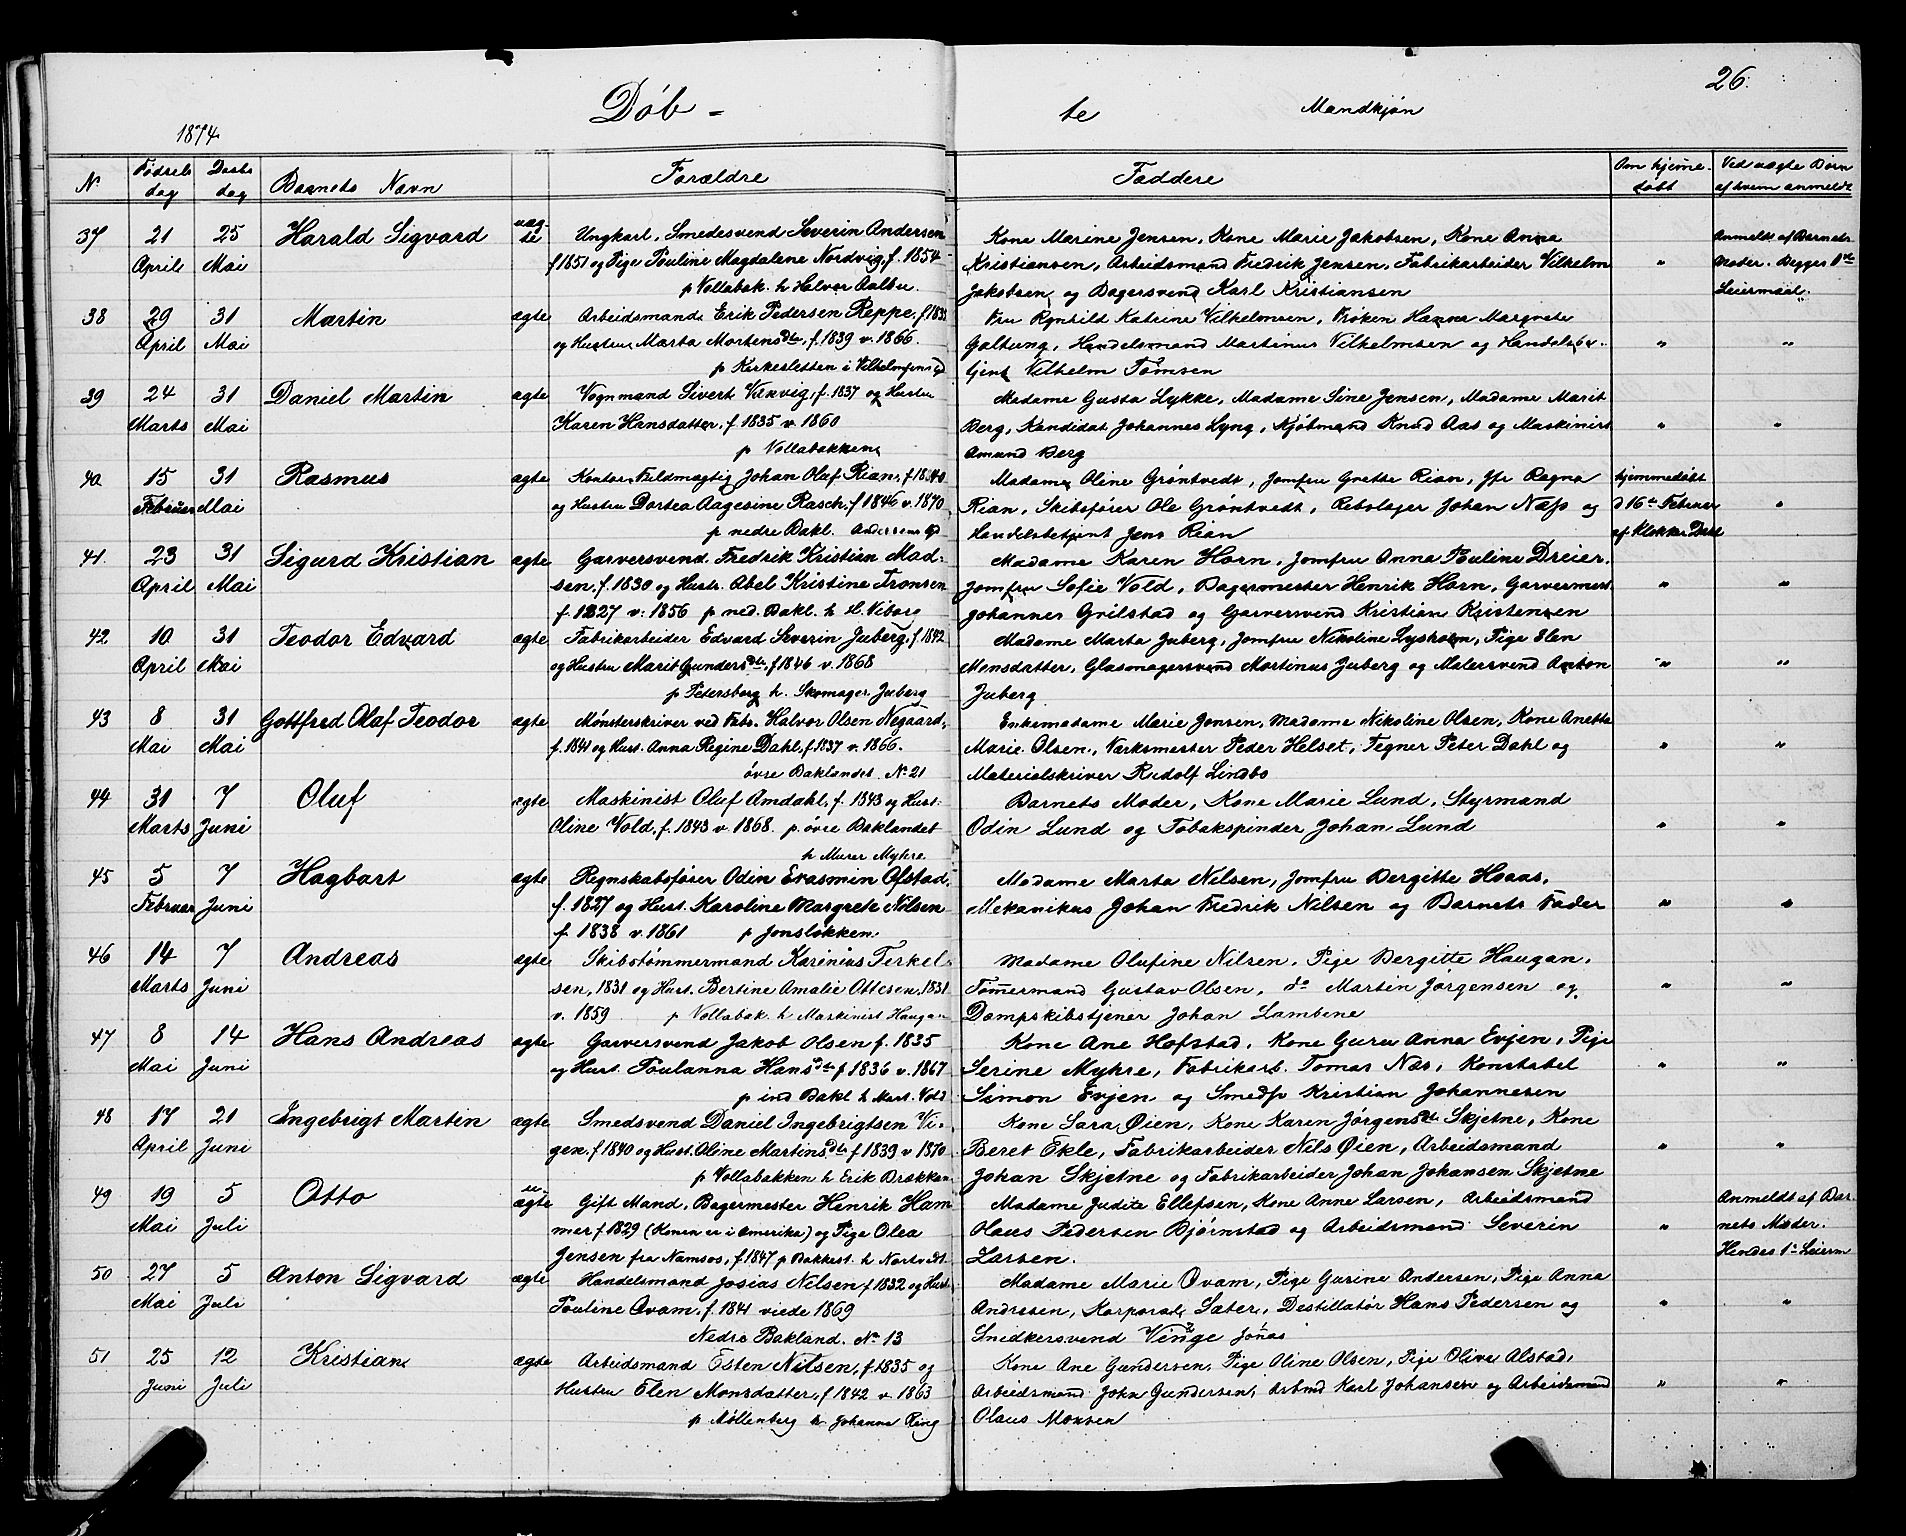 26.
Døb - te Mandkjøn
1874
No Fødsels dag Daabs dag Barnets Navn Forældre Faddere Om hjemme- døbt Ved uægte Børn af hvem anmeldt
37 21 April 25 Mai Harald Sigvard uæg- te
Ungkarl, Smedesvend Severin Andersen
f 1851 og Pige Pouline Magdalene Nordvig, f. 1854
p Vollabak. h Halvor Aalbu.
Kone Marine Jensen, Kone Marie Jakobsen, Kone Anna
Kristiansen, Arbeidsmand Fredrik Jensen, Fabrikarbeider Vilhelm
Jakobsen og Bagersvend Karl Kristiansen
"
Anmeldt af Barnets
Moder. Begges 1ste
Leiermaal.
38 29 April 31 Mai Martin ægte
Arbeidsmand Erik Pedersen Reppe, f 1833
og Hustru Marta Mortensdtr, f. 1839 v. 1866.
p Kirkesletten i Vilhelmsens Gd
Fru Ragnhild Katrine Vilhelmsen, Frøken Hanna Margrete
Galtung, Handelsmand Martinus Vilhelmsen og Handelsbe-
tjent Vilhelm Tømsen
" "
39 24 Marts 31 Mai Daniel Martin ægte
Vognmand Sivert Vikvig, f. 1837 og Hustru
Karen Hansdatter, f. 1835 v. 1860
p Vollabakken
Madame Gusta Lykke, Madame Sine Jensen, Madame Marit
Berg, Kandidat Johannes Lyng, Kjøbmand Knud Aas og Maskinist
Amund Berg
" "
40 15 Februar 31 Mai Rasmus ægte
Kontor Fuldmægtig Johan Olaf Rian, f. 1840
og Hustru Dortea Aagesine Rasch, f 1846 v. 1870
p nedre Bakl. Andersens Gd
Madame Oline Grøntvedt, Jomfru Grethe Rian, Jfr Ragna
Rian, Skibsfører Ole Grøntvedt, Rebslager Johan Næss og
Handelsbetjent Jens Rian
hjemmedøbt
d 16de Februar
af Klokker Dahl
"
41. 23 April 31 Mai Sigurd Kristian ægte
Garversvend. Fredrik Kristian Mad-
sen, f. 1830 og Hustr. Abel Kristine Tronsen
f. 1827 v. 1856 p ned. Bakl. h H. Viborg
Madame Karen Horn, Jomfru Anna Pauline Dreier,
Jomfru Sofie Vold, Bagermester Henrik Horn, Garvermest
Johannes Grilstad og Garversvend Kristian Kristensen
" "
42 10 April 31 Mai Teodor Edvard ægte
Fabrikarbeider Edvard Severin Juberg, f 1842
og Hustru Marit Gundersdtr, f 1846 v. 1868
p Petersborg h. Skomager Juberg
Madame Marta Juberg, Jomfru Nikoline Lysholm, Pige Elen
Monsdatter, Glasmagersvend Martinus Juberg og Malersvend Anton
Juberg
" "
43 8 Mai 31 Mai Gottfred Olaf Teodor ægte
Mønsterskriver ved Fabr. Halvor Olsen Negaard,
f. 1841 og Hust. Anna Regine Dahl, f. 1837 v. 1866.
øvre Baklandet No 21
Enkemadame Marie Jensen, Madame Nikoline Olsen, Kone Anette
Marie Olsen, Værksmester Peder Helset, Tegner Peter Dahl og
Materialskriver Rudolf Lindbo
" "
44 31 Marts 7 Juni Oluf ægte
Maskinist Oluf Amdahl, f. 1843 og Hust.
Oline Vold, f. 1843 v. 1868. p. øvre Baklandet
h Murer Myhre
Barnets Moder, Kone Marie Lund, Styrmand
Odin Lund og Tobakspinder Johan Lund
" "
45 5 Februar 7 Juni Hagbart ægte
Regnskabsfører Odin Erasmin Ofstad,
f. 1827 og Hust. Karoline Margrete Nilsen
f. 1838 v. 1861 p Jonsløkken.
Madame Marta Nilsen, Jomfru Bergitte Haaas,
Mekanikus Johan Fredrik Nilsen og Barnets Fader
" "
46 14 Marts 7 Juni Andreas ægte
Skibstømmermand Karinius Terkel-
sen, 1831 og Hust. Bertine Amalie Ottesen, 1831
v. 1859 p Vollabak. h Maskinist Haugan
Madame Olufine Nilsen, Pige Bergitte Haugan,
Tømmermand Gustav Olsen, do Martin Jørgensen og
Dampskibstjener Johan Lambene
" "
47 8 Mai 14 Juni Hans Andreas ægte
Garversvend Jakob Olsen f. 1835
og Hust. Poulanna Hansdtr f 1836 v. 1867
p ind Bakl h Mart. Vold
Kone Ane Hofstad, Kone Guru Anna Evjen, Pige
Serine Myhre, Fabrikarb. Tomas Næs, Konstabel
Simon Evjen og Smedsv Kristian Johannesen
" "
48 17 April 21 Juni Ingebrigt Martin ægte
Smedsvend Daniel Ingebrigtsen Vi-
gen, f. 1840 og Hust. Oline Martinsdtr f 1839 v 1870
p Vollabakken h Erik Brækkan
Kone Sara Øien, Kone Karen Jørgensdtr Skjetne, Kone
Beret Ekle, Fabrikarbeider Nils Øien, Arbeidsmand
Johan Skjetne og Fabrikarbeider Johan Johansen Skjetne
" "
49 19 Mai 5 Juli Otto u- ægte
Gift Mand, Bagermester Henrik Ham-
mer f 1829 (Konen er i Amerika) og Pige Olea
Jensen fra Namsos, f. 1847 p Bakkest. h Nortvedt.
Madame Judite Ellefsen, Kone Anne Larsen, Arbeidsmand
Olaus Pedersen Bjørnstad og Arbeidsmand Severin
Larsen.
"
Anmeldt af Bar-
nets Moder.
Hendes 1ste Leierm
50 27 Mai 5 Juli Anton Sigvard ægte
Handelsmand Josias Nilsen f 1832 og Hust.
Pouline Ovam, f. 1841 viede 1869
Nedre Bakland. No 13
Madame Marie Ovam, Pige Gurine Andersen, Pige Anna
Andresen, Korporal Sæter, Destillatør Hans Pedersen og
Snidkersvend Vinge Jonas
" "
51 25 Juni 12 Juli Kristian ægte
Arbeidsmand Esten Nilsen, f. 1835 og
Hustru Elen Monsdatter, f 1842 v. 1863
p Møllenberg h Johanna Ring
Kone Ane Gundersen, Pige Oline Olsen, Pige Oliva Alstad,
Arbeidsmand John Gundersen, Arbmd Karl Johansen og Arbeidsmand
Olaus Monsen
" "